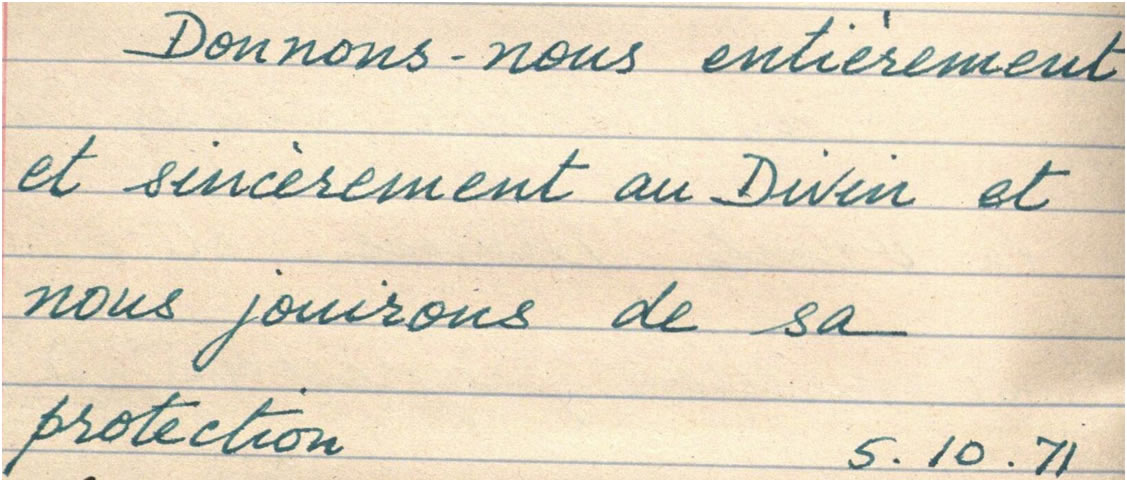 Donnons-nous entièrement
et sincèrement au Divin et
nous jouirons de sa
protection 5.10.71